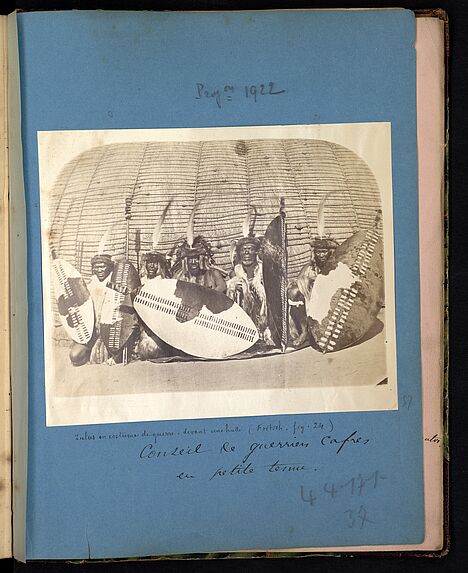 Projon 1922
57
Zulus en costume de guerre. devant une hutte (Fritsch. fig. 24)
Conseil de guerriers cafres
en petite tenue.